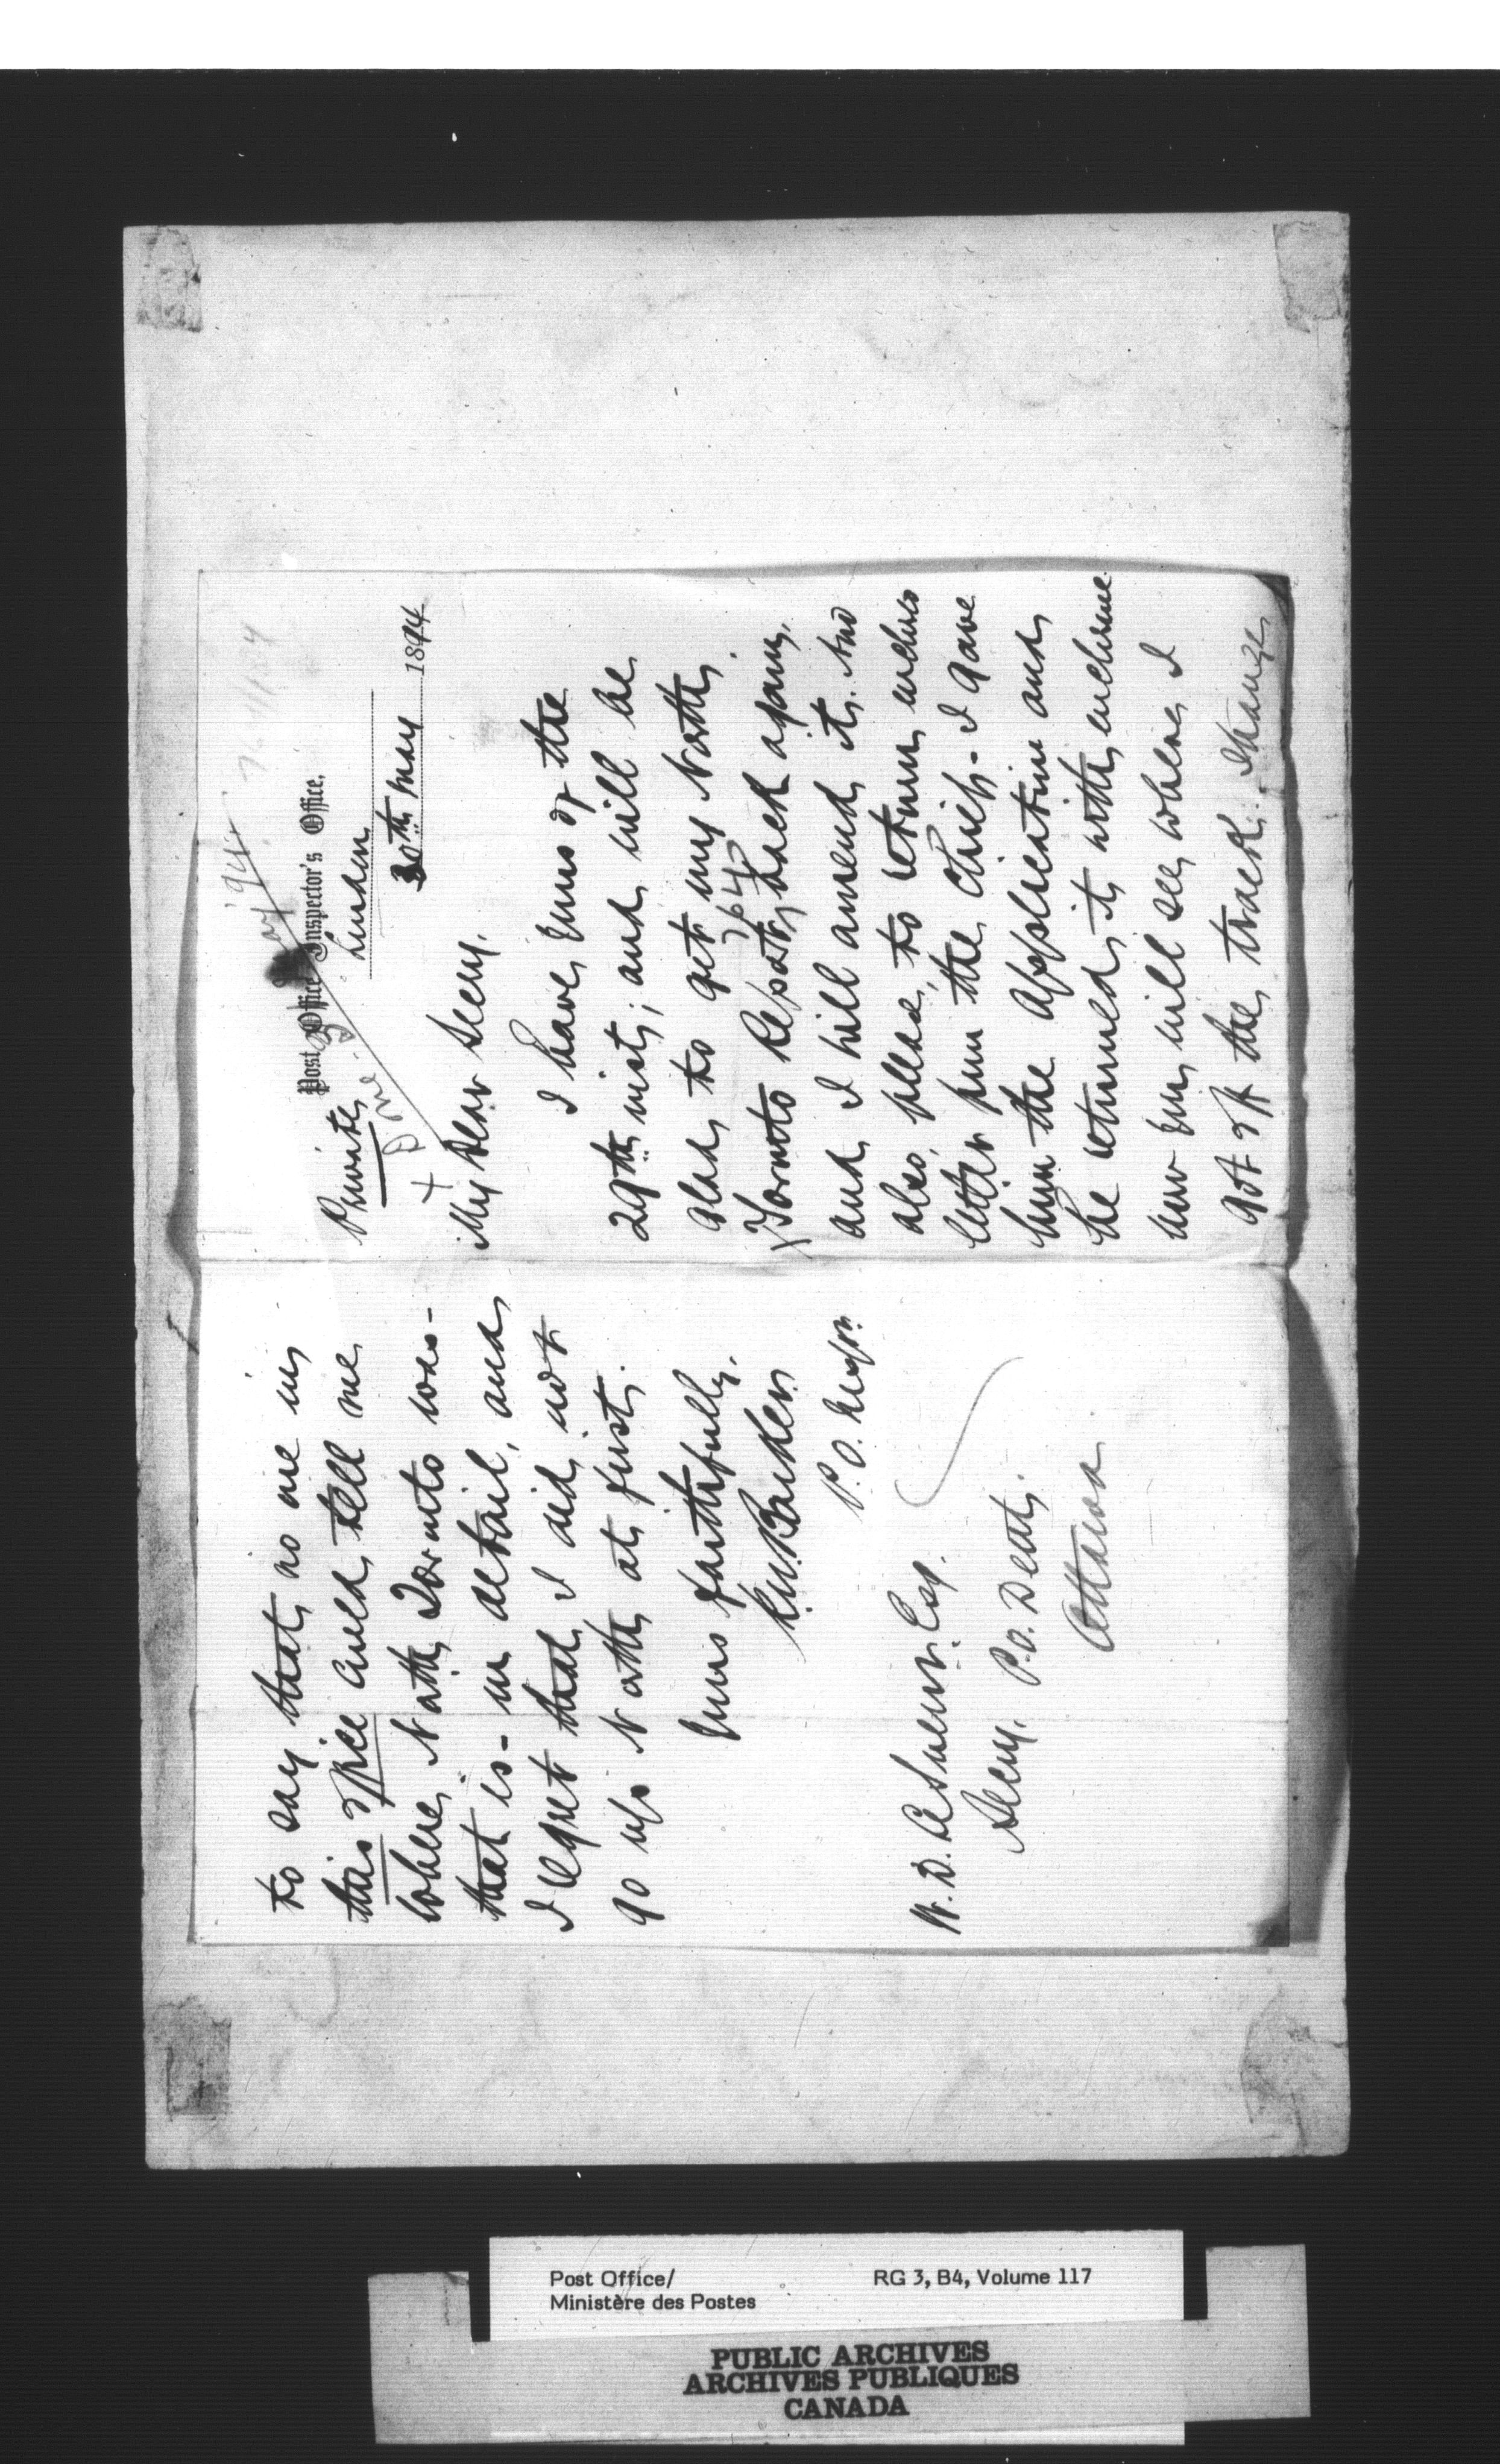 Post Office Inspector's Office,
London
30th May 1894
Private
Done
My dear Secy.
I have yours of the
29th inst; and will be
glad to get my North
Toronto Report, 764 back again,
and I will amend it. And
also, please, to return enclosed
letter from the Chief - I gave
him the application and
he returned it with enclosure
now you will see where I
got off the track. Strange
to say that no one in
this office could tell me
where North Toronto was -
that is - in detail, and
I regret that I did not
go up North at first.
Yours faithfully,
R.W. Barker
P.O. Inspr.
W. D. LeSueur Esq.
Secy. P.O. Dept.
Ottawa
Post Office/
Ministère des Postes
RG 3, B4, Volume 117
PUBLIC ARCHIVES
ARCHIVES PUBLIQUES
CANADA